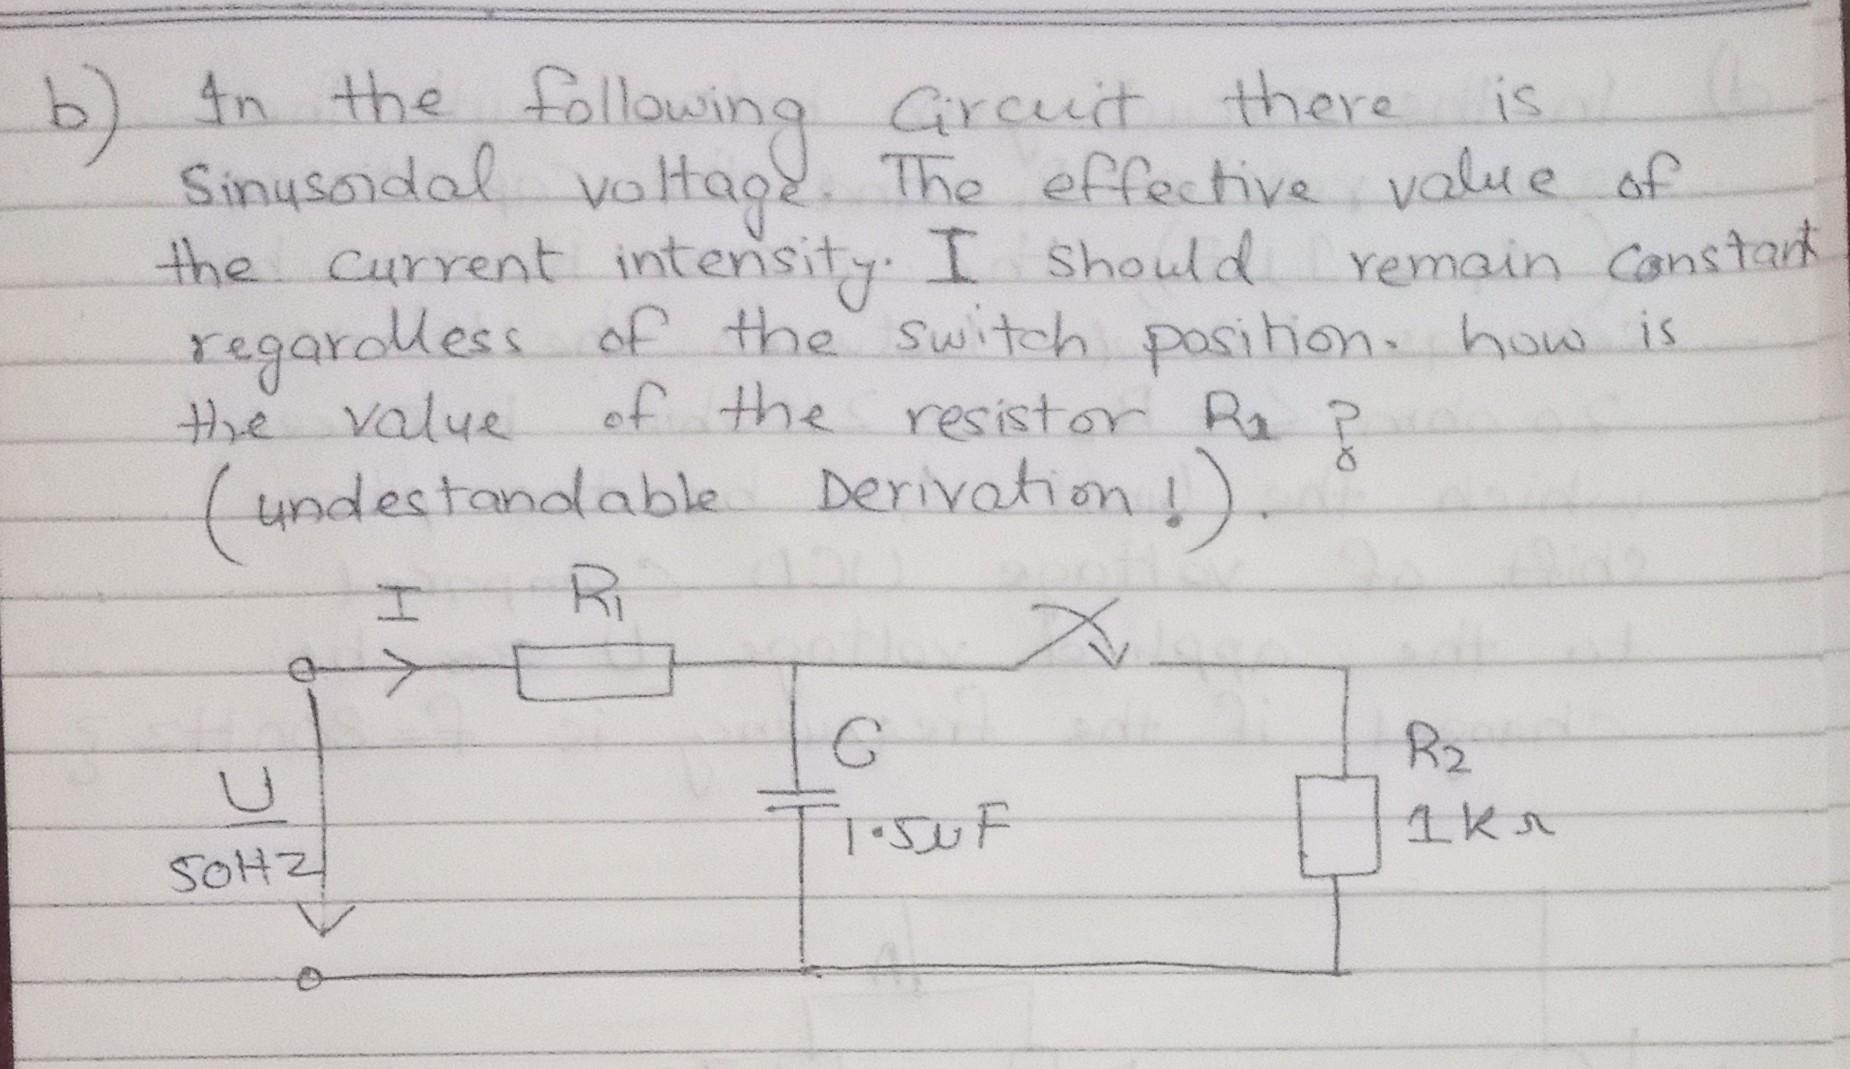 b) In the following Circuit there is
Sinusoidal voltage. The effective value of
the current intensity. I should remain Constant
regardless of the switch position. how is
the value of the resistor R1 ?
(undestandable Derivation!).
I R1
C
R2
U
1.5uF
1KΩ
50HZ